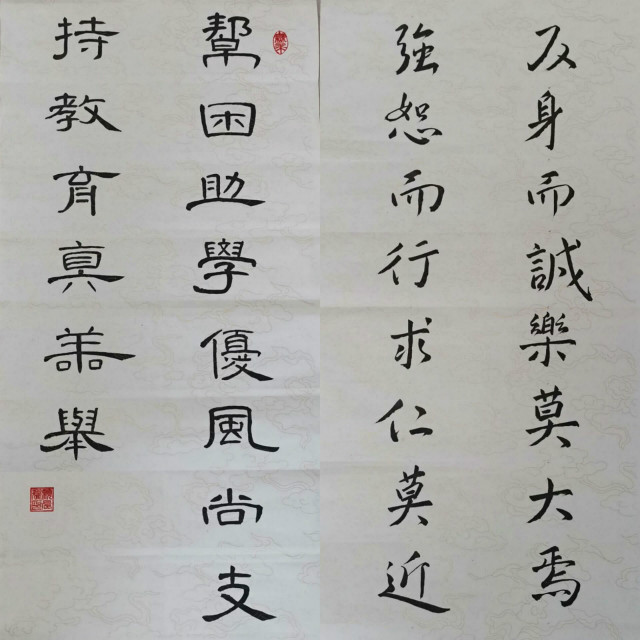 反身而誠樂莫大焉
強恕而行求仁莫近
幫困助學優風尚支
持教育真善舉